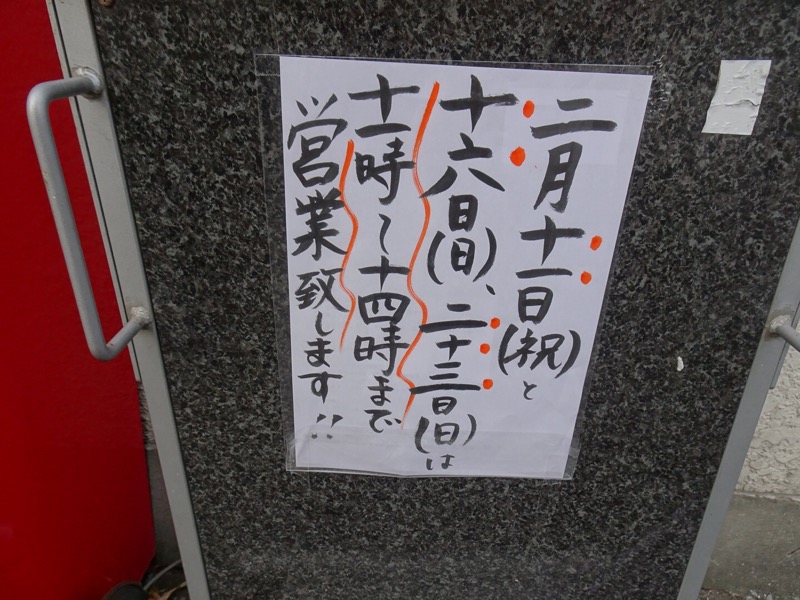 二月十一日(祝)と
十六日(日)、二十三日(日)は
十一時～十四時まで
営業致します!!